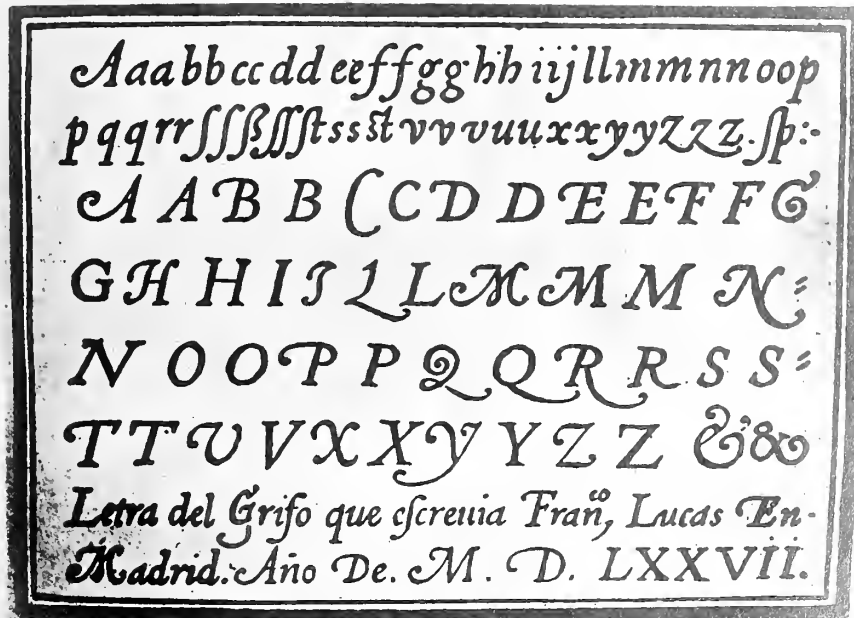 Aaabbccddeeffgghhiijllmmnnoop
pqqrrſſſßſſſtssstvvvuuxxyyzzz.ſp:-
A A B B C C D D E E F F G
G H H I J L L M M M N=
N O O P P Q Q R R S S=
T T V V X X Y Y Z Z & &
Letra del Grifo que eſcreuia Franͦ, Lucas En-
Madrid. Año De. M. D. LXXVII.